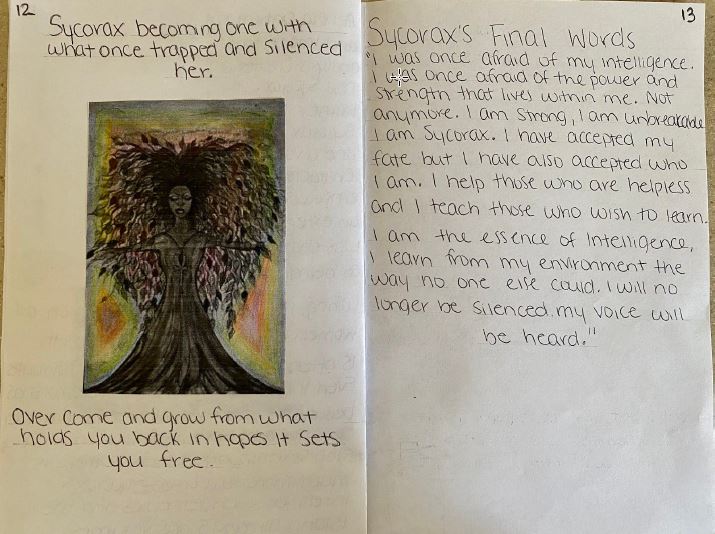 12
Sycorax becoming one with
what once trapped and silenced
her.
Over come and grow from what
holds you back in hopes it sets
you free.
13
Sycorax's Final Words
"I was once afraid of my intelligence.
I was once afraid of the power and
strength that lives within me. Not
anymore. I am strong, I am unbreakable
I am Sycorax. I have accepted my
fate but I have also accepted who
I am. I help those who are helpless
and I teach those who wish to learn.
I am the essence of Intelligence,
I learn from my environment the
way no one else could. I will no
longer be silenced my voice will
be heard."